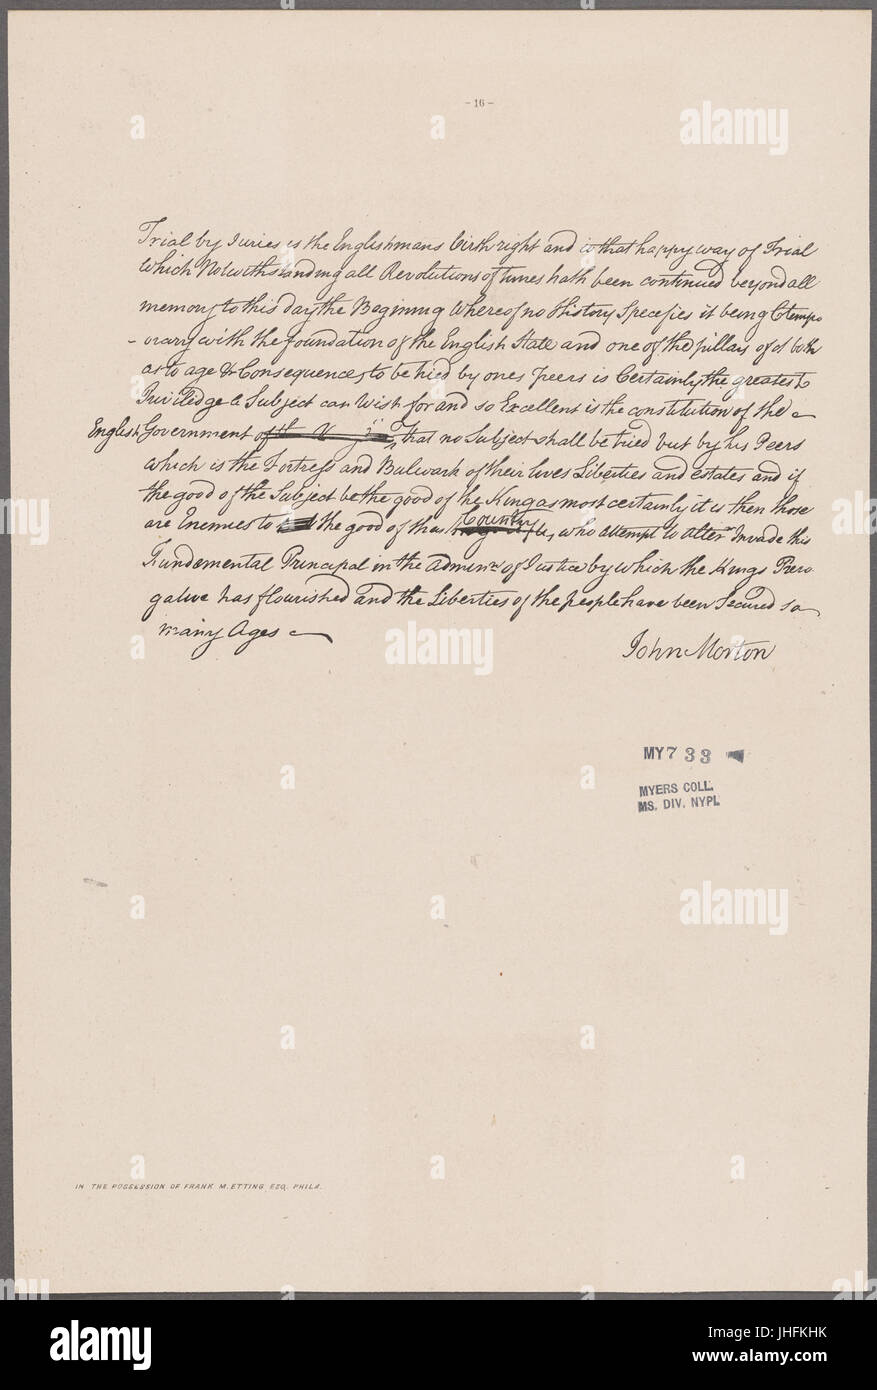 - 16 -
Trial by Juries is the Englishmans birth right and is that happy way of Trial
which Notwithstanding all Revolutions of times hath been continued beyond all
memory to this day the Beginning Whereof no History Specefies it being Cotempo
- orary with the foundation of the English State and one of the pillars of it both
as to age & Consequence, to be tried by ones Peers is Certainly the greatest
Priviledge a Subject can Wish for and so Excellent is the constitution of the
English Government that no Subject shall be tried but by his Peers
which is the Fortress and Bulwark of their lives Liberties and estates and if
the good of the Subject be the good of the King as most certainly it is then those
are Enemies to the good of the County who attempt to alter or Invade this
Fundemental Principal in the Adminn. of Justice by which the Kings Prero
gative has flourished and the Liberties of the people have been Secured so
many Ages
John Morton
MY 7 33
MYERS COLL.
MS. DIV. NYPL
IN THE POSSESSION OF FRANK M. ETTING ESQ. PHILA.
alamy
Image ID: JHFKHK
www.alamy.com